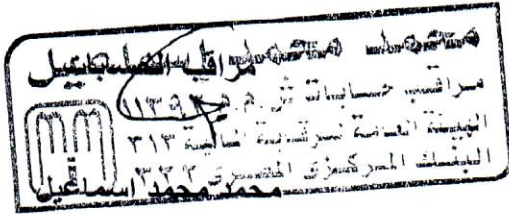 محمد محمد اسماعيل
مراقب الحسابات
مراقب حسابات س.م.م ١١٣٩٣
الهيئة العامة للرقابة المالية ٣١٣
البنك المركزى المصرى ٣٢٢
محمد محمد اسماعيل